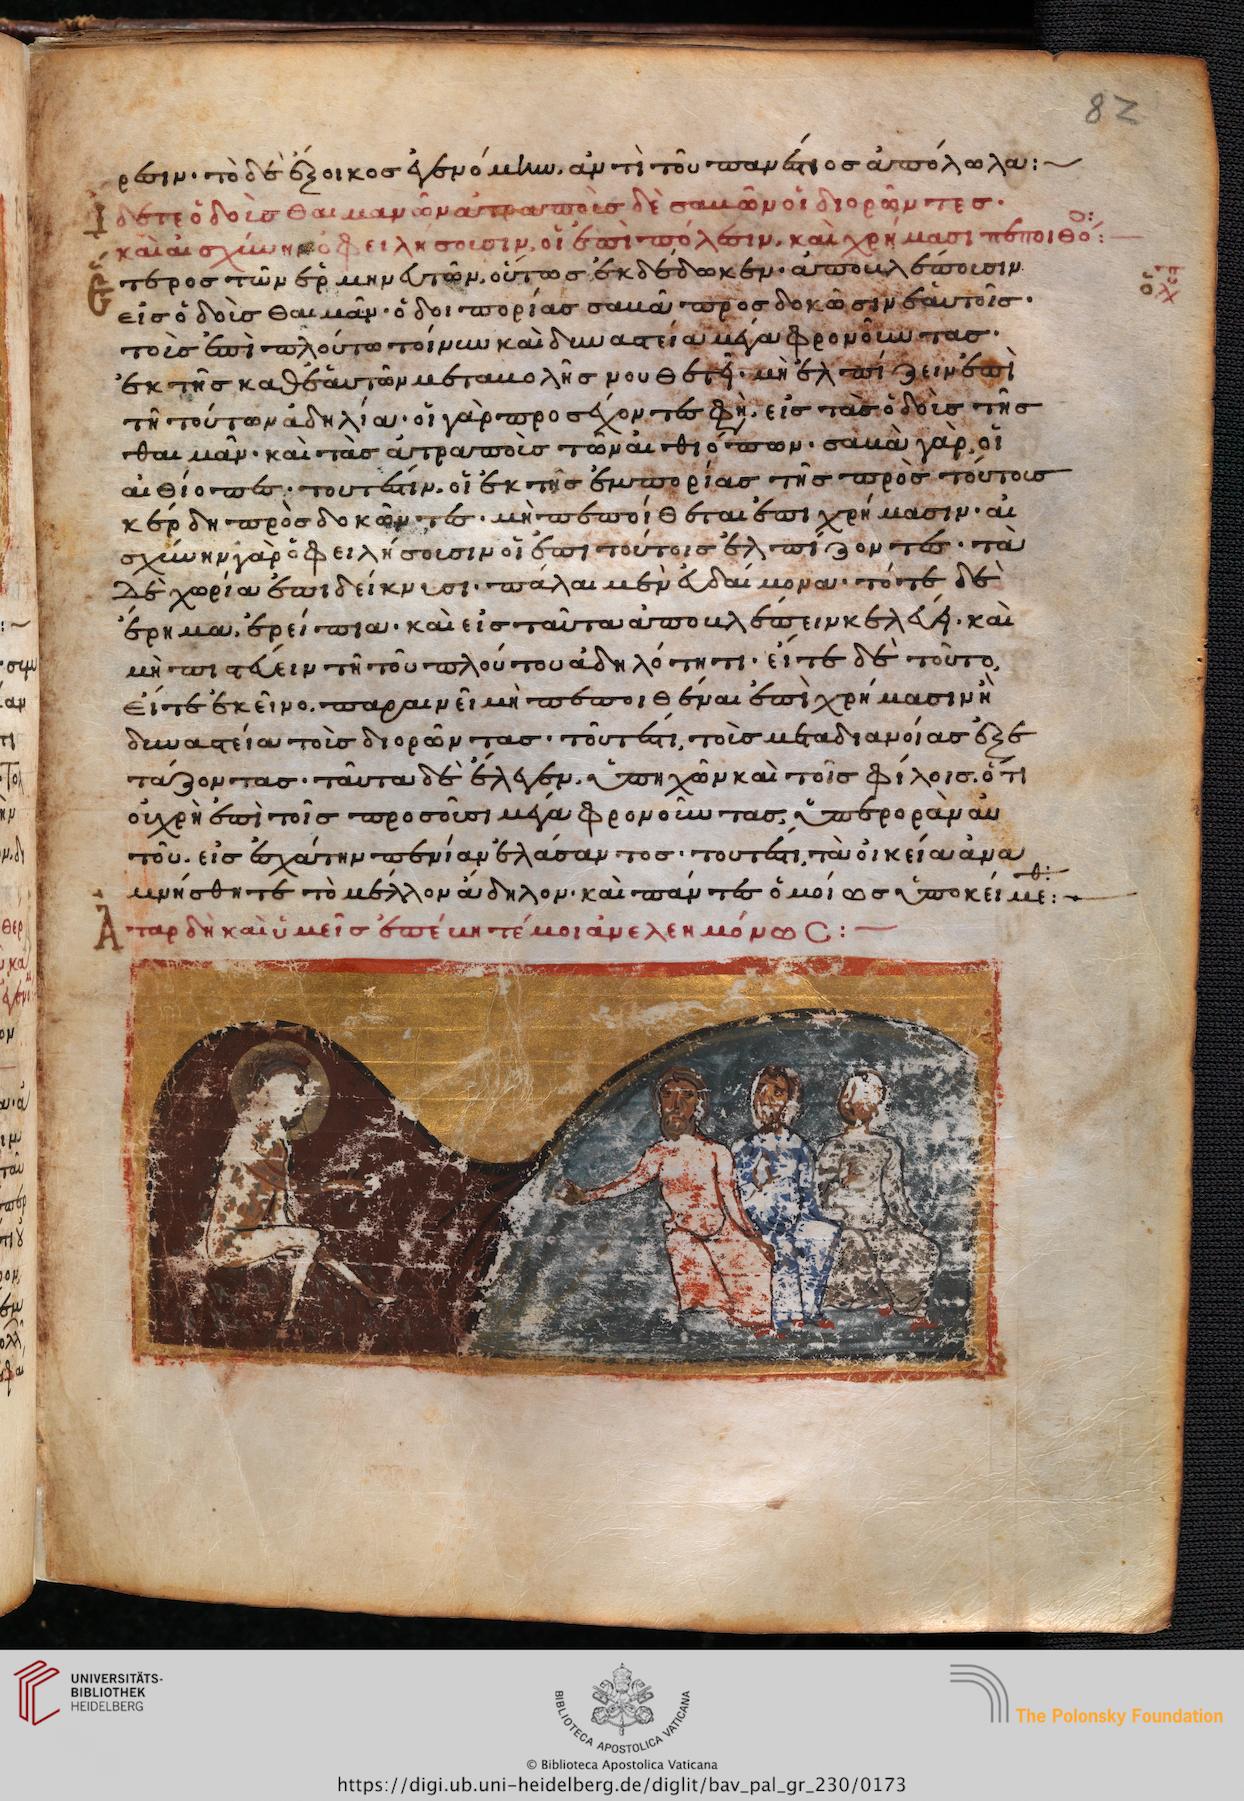 82
ρεσιν· τὸ δὲ ἔξοικος ἐγενόμην, ἀντὶ τοῦ παντελῶς ἀπόλωλα:
Ἴδετε ὁδοὺς θαιμανῶν ἀτραποὺς δὲ σαβῶν οἱ διορῶντες·
καὶ αἰσχύνην ὀφειλήσουσιν, οἱ ἐπὶ πόλεσιν, καὶ χρήμασι πεποιθό:
Ἕτερος τῶν ἑρμηνευτῶν, οὕτως ἐκδέδωκεν· ἀποβλέπουσιν
εἰς ὁδοὺς θαιμάν· ὁδοιπορίας σαβᾶ προσδοκῶσιν ἑαυτοῖς·
τοὺς ἐπὶ πλούτω τοίνυν καὶ δυναστεία μέγα φρονοῦντας·
ἐκ τῆς καθ' ἑαυτὸν μεταβολῆς νουθετεῖ· μὴ ἐλπίζειν ἐπὶ
τῆ τούτων ἀδηλία· οἱ γὰρ προσέχοντες φη, εἰς τὰς ὁδοὺς τῆς
θαιμὰν· καὶ τὰς ἀτραποὺς τῶν αἰθιόπων· σαβὰ γὰρ, οἱ
αἰθίοπες· τουτέστιν, οἱ ἐκ τῆς ἐμπορίας τῆς πρὸς τούτους
κέρδη προσδοκῶντες· μὴ πεποίθεται ἐπὶ χρήμασιν· αἰ
σχύνην γὰρ ὀφειλήσουσιν οἱ ἐπὶ τούτοις ἐλπίζοντες· τὰ
δὲ χωρία ἐπιδείκνυσι· πάλαι μὲν εὐδαίμονα· τότε δὲ
ἔρημα, ἐρείπια· καὶ εἰς ταῦτα ἀποβλέπειν κελεύει· καὶ
μὴ πιστεύειν τῆ τοῦ πλούτου ἀδηλότητι· εἴτε δὲ τοῦτο,
εἴτε ἐκεῖνο, παραινεῖ μὴ πεποιθέναι ἐπὶ χρήμασιν ἢ
δυναστεία τοὺς διορῶντας· τουτέστι, τοὺς μετὰ διανοίας ἐξε
τάζοντας· ταῦτα δὲ ἔλεγεν, ὑπηχῶν καὶ τοῖς φίλοις, ὅτι
οὐ χρὴ ἐπὶ τοῖς προσοῦσι μέγα φρονοῦντας, ὑπερορᾶν αὐ
τοῦ, εἰς ἐσχάτην πενίαν ἐλάσαντος· τουτέστι, τὰ οἰκεῖα ἀνα
μνήσθητε τὸ μέλλον ἄδηλον· καὶ πάντες ὁμοίως ὑποκείμεθ:
Ἀτὰρ δὴ καὶ ὑμεῖς ἐπέβητέ μοι ἀνελεημόνως:
UNIVERSITÄTS-
BIBLIOTHEK
HEIDELBERG
BIBLIOTECA APOSTOLICA VATICANA
The Polonsky Foundation
© Biblioteca Apostolica Vaticana
https://digi.ub.uni-heidelberg.de/diglit/bav_pal_gr_230/0173